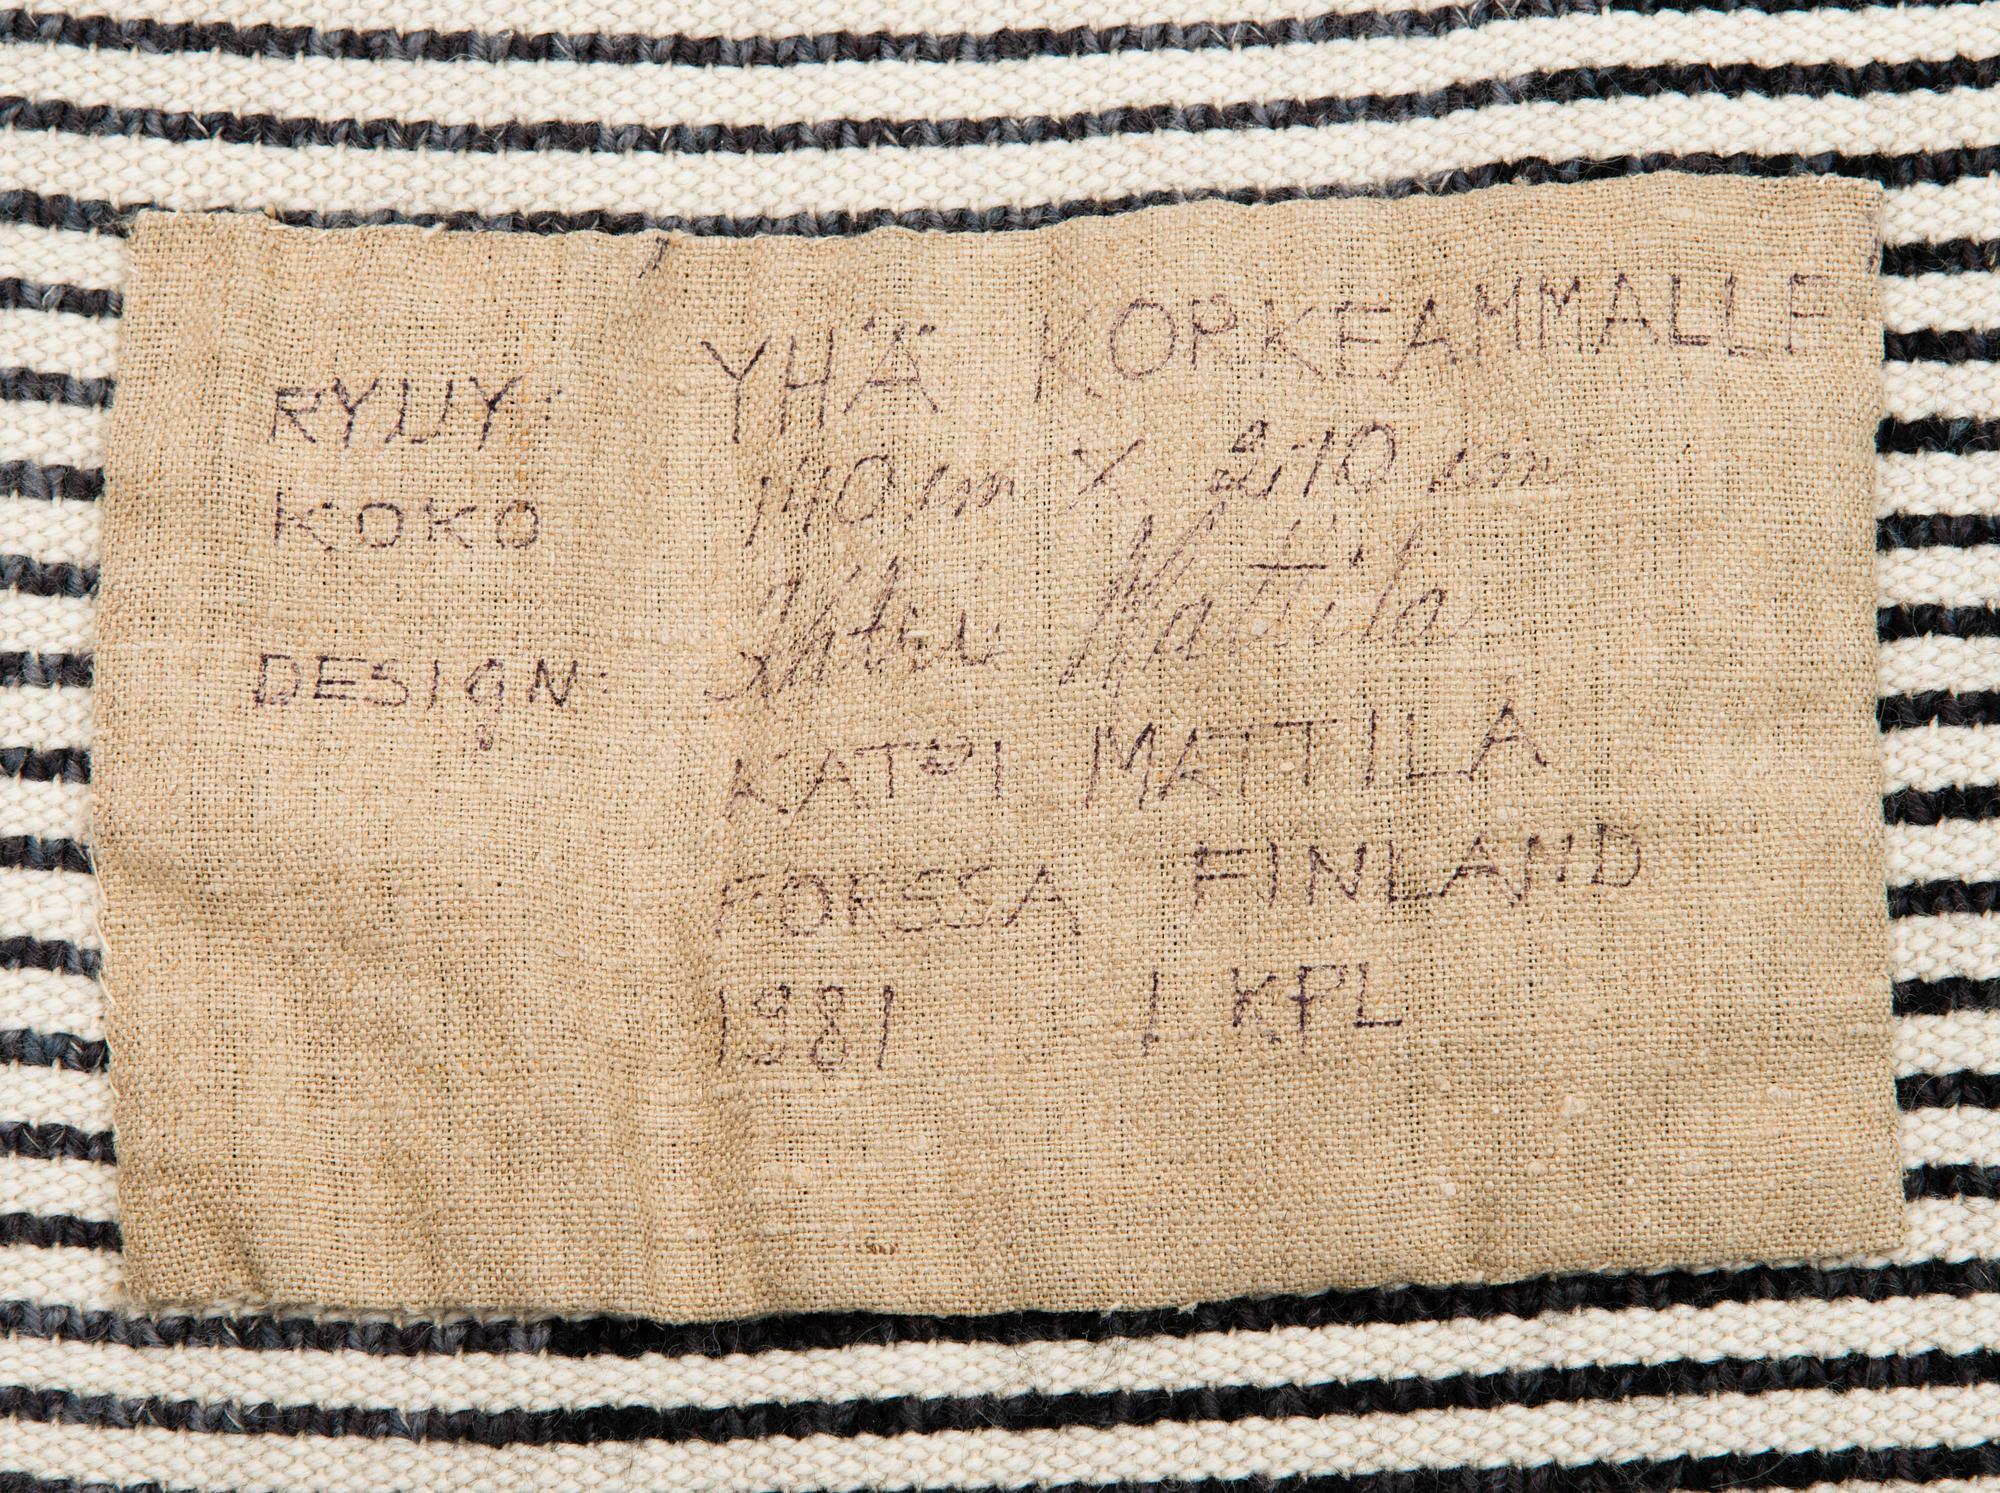 RYIJY: YHÄ KORKEAMMALLE
KOKO 140 cm X 210 cm
DESIGN: Mattila
KATRI MATTILA
FORSSA FINLAND
1981 1 KPL